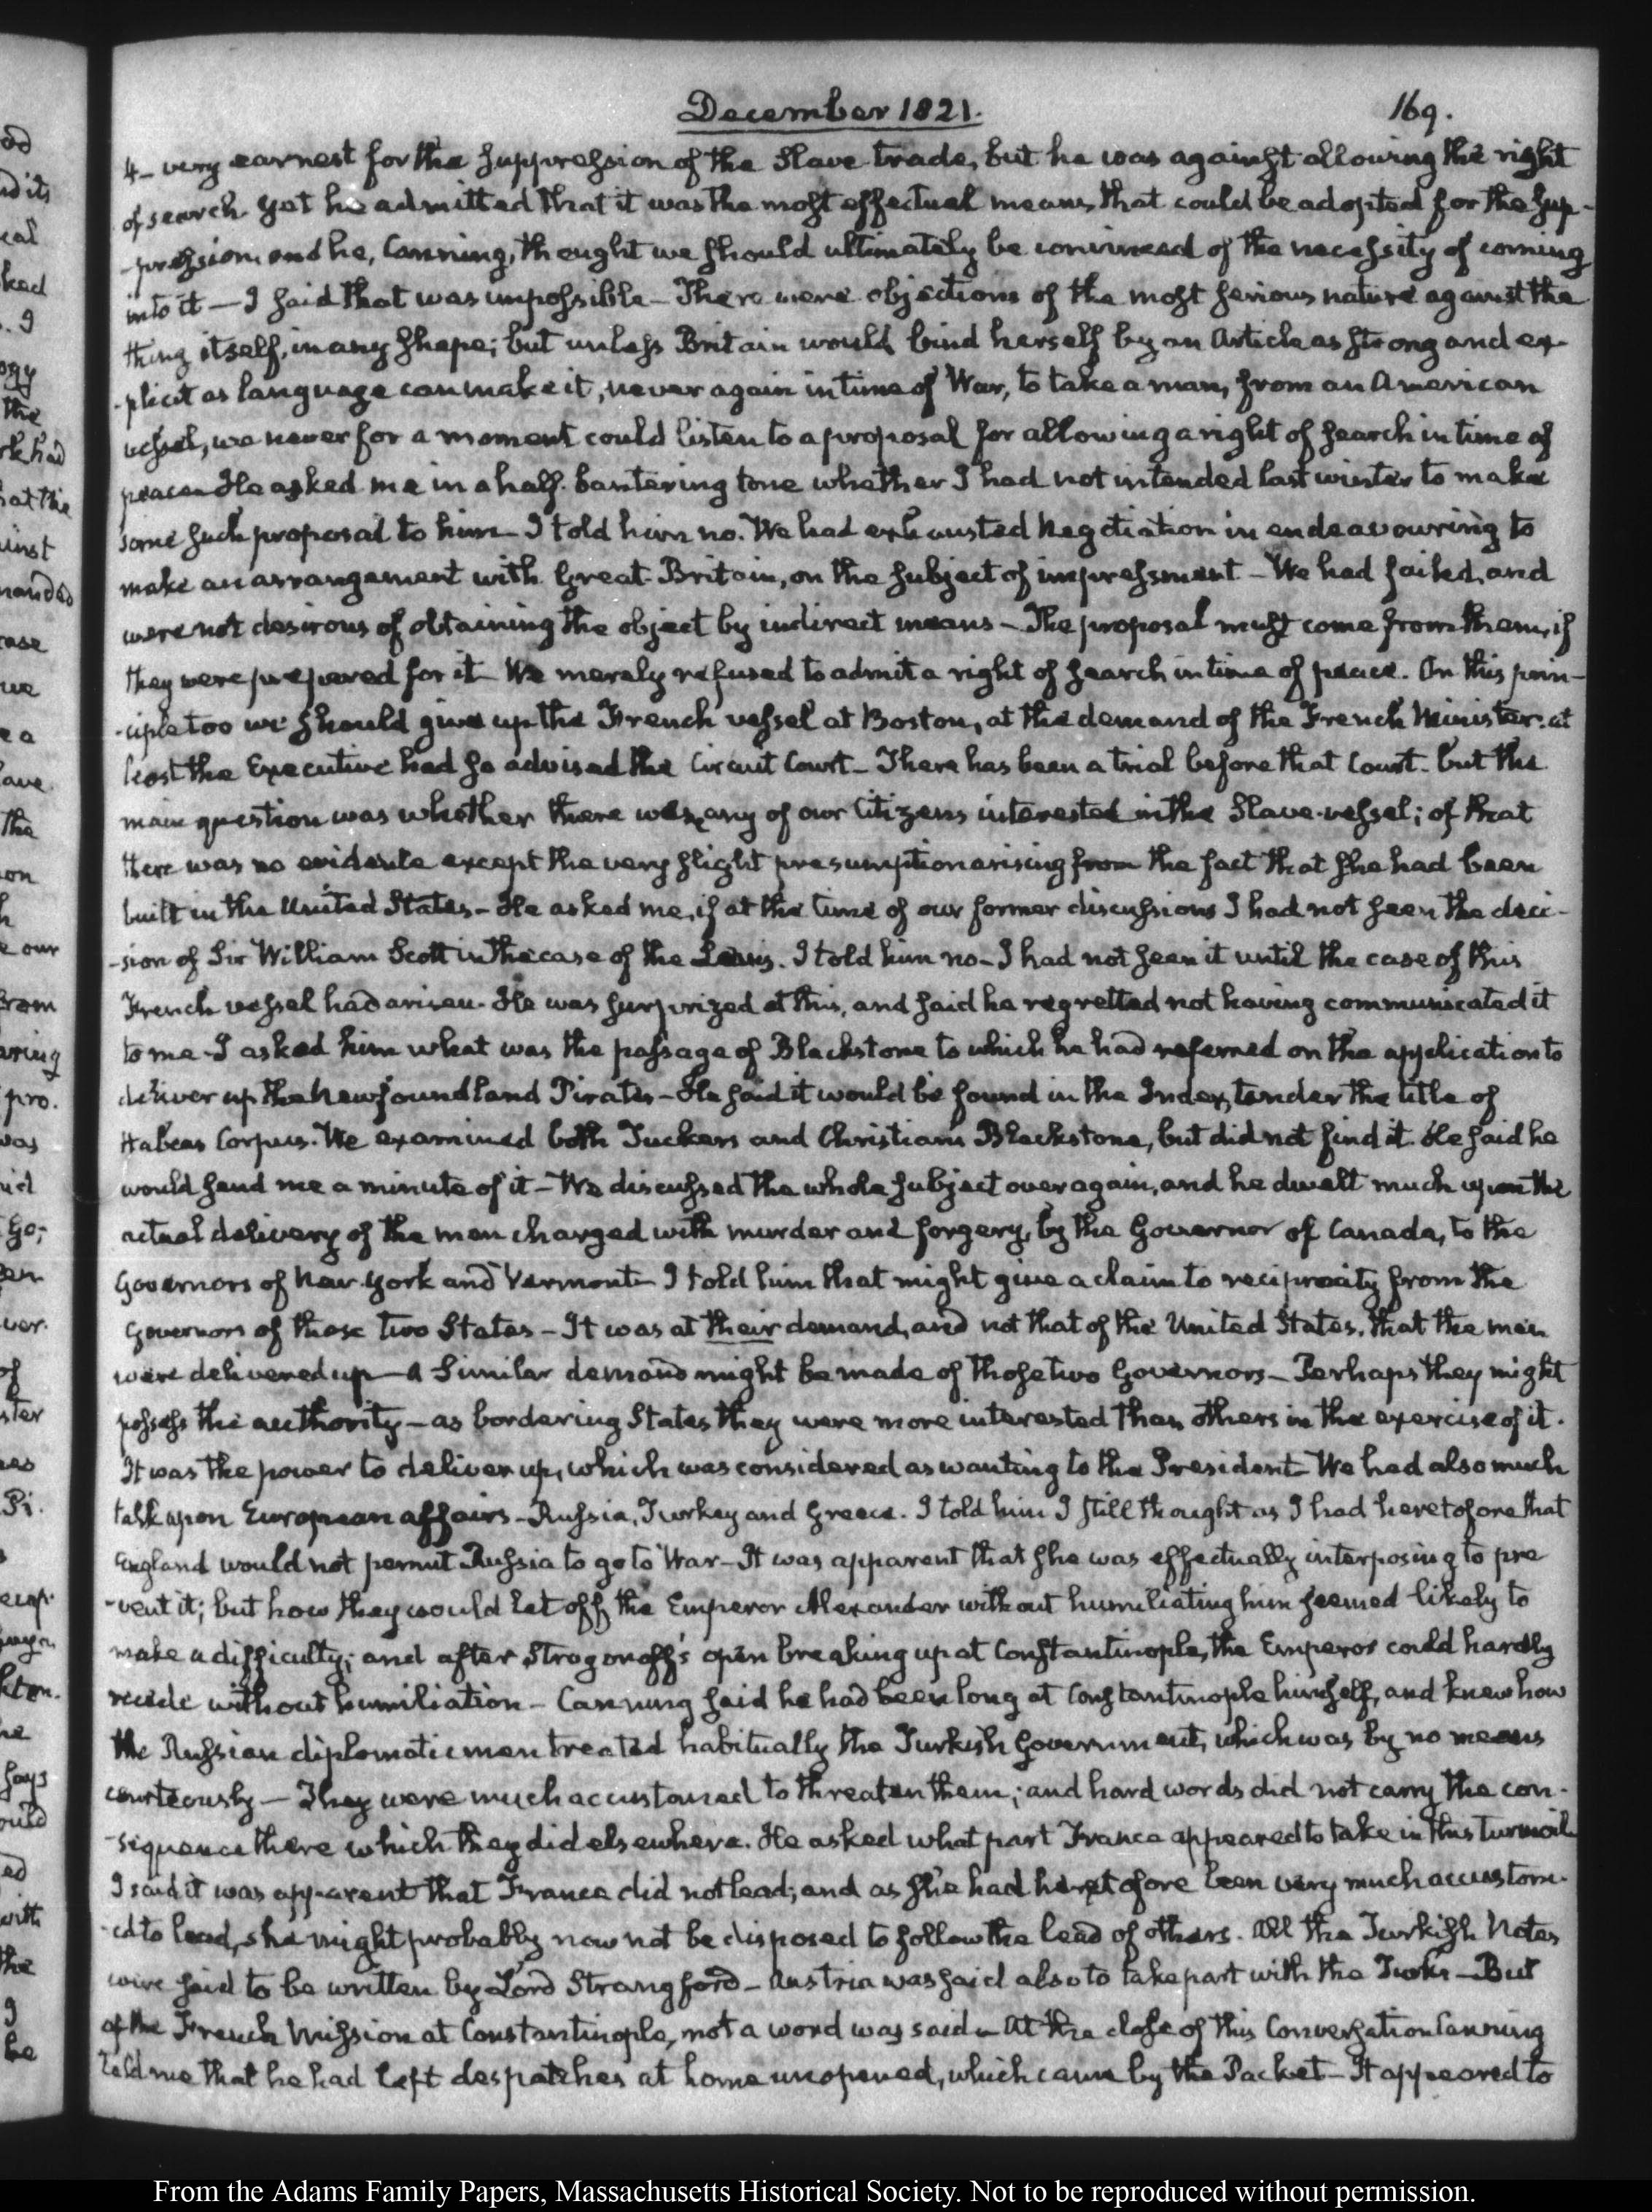 December 1821.
169.
4 — very earnest for the suppression of the Slave trade, but he was against allowing the right
of search. yet he admitted that it was the most effectual means that could be adopted for the sup-
-pression, and he, Canning, thought we should ultimately be convinced of the necessity of coming
into it — I said that was impossible — There were objections of the most serious nature against the
thing itself, in any shape; but unless Britain would bind herself by an Article as strong and ex-
-plicit as language can make it, never again in time of War, to take a man, from an American
vessel, we never for a moment could listen to a proposal for allowing a right of search in time of
peace — He asked me in a half-bantering tone whether I had not intended last winter to make
some such proposal to him — I told him no. We had exhausted Negotiation in endeavouring to
make an arrangement with Great-Britain, on the subject of impressment — We had failed, and
were not desirous of obtaining the object by indirect means — The proposal must come from them, if
they were prepared for it — We merely refused to admit a right of search in time of peace. On this prin-
-ciple too we should give up the French vessel at Boston, at the demand of the French Minister: at
least the Executive had so advised the Circuit Court — There has been a trial before that Court. but the
main question was whether there was any of our Citizens interested in the Slave-vessel; of that
there was no evidence except the very slight presumption arising from the fact that she had been
built in the United States — He asked me, if at the time of our former discussions I had not seen the deci-
-sion of Sir William Scott in the case of the Louis. I told him no — I had not seen it until the case of this
French vessel had arisen. He was surprized at this, and said he regretted not having communicated it
to me — I asked him what was the passage of Blackstone to which he had referred on the application to
deliver up the Newfoundland Pirates — He said it would be found in the Index, under the title of
Habeas Corpus. We examined both Tuckers and Christian's Blackstone, but did not find it. He said he
would send me a minute of it — We discussed the whole subject over again, and he dwelt much upon the
actual delivery of the men charged with murder and forgery, by the Governor of Canada, to the
Governors of New-York and Vermont — I told him that might give a claim to reciprocity from the
Governors of those two States — It was at their demand, and not that of the United States, that the men
were delivered up — A similar demand might be made of those two Governors — Perhaps they might
possess the authority — as bordering States they were more interested than others in the exercise of it.
It was the power to deliver up, which was considered as wanting to the President — We had also much
talk upon European affairs — Russia, Turkey and Greece. I told him I still thought as I had heretofore that
England would not permit Russia to go to War — It was apparent that she was effectually interposing to pre
-vent it; but how they would let off the Emperor Alexander without humiliating him seemed likely to
make a difficulty; and after Strogonoff's open breaking up at Constantinople, the Emperor could hardly
recede without humiliation — Canning said he had been long at Constantinople himself, and knew how
the Russian diplomatic men treated habitually the Turkish Government, which was by no means
courteously — They were much accustomed to threaten them; and hard words did not carry the con-
-sequence there which they did elsewhere. He asked what part France appeared to take in this turmoil
I said it was apparent that France did not lead; and as she had heretofore been very much accustom-
-ed to lead, she might probably now not be disposed to follow the lead of others. All the Turkish Notes
were said to be written by Lord Strangford — Austria was said also to take part with the Turks — But
of the French Mission at Constantinople, not a word was said — At the close of this Conversation Canning
told me that he had left despatches at home unopened, which came by the Packet — It appeared to
From the Adams Family Papers, Massachusetts Historical Society. Not to be reproduced without permission.